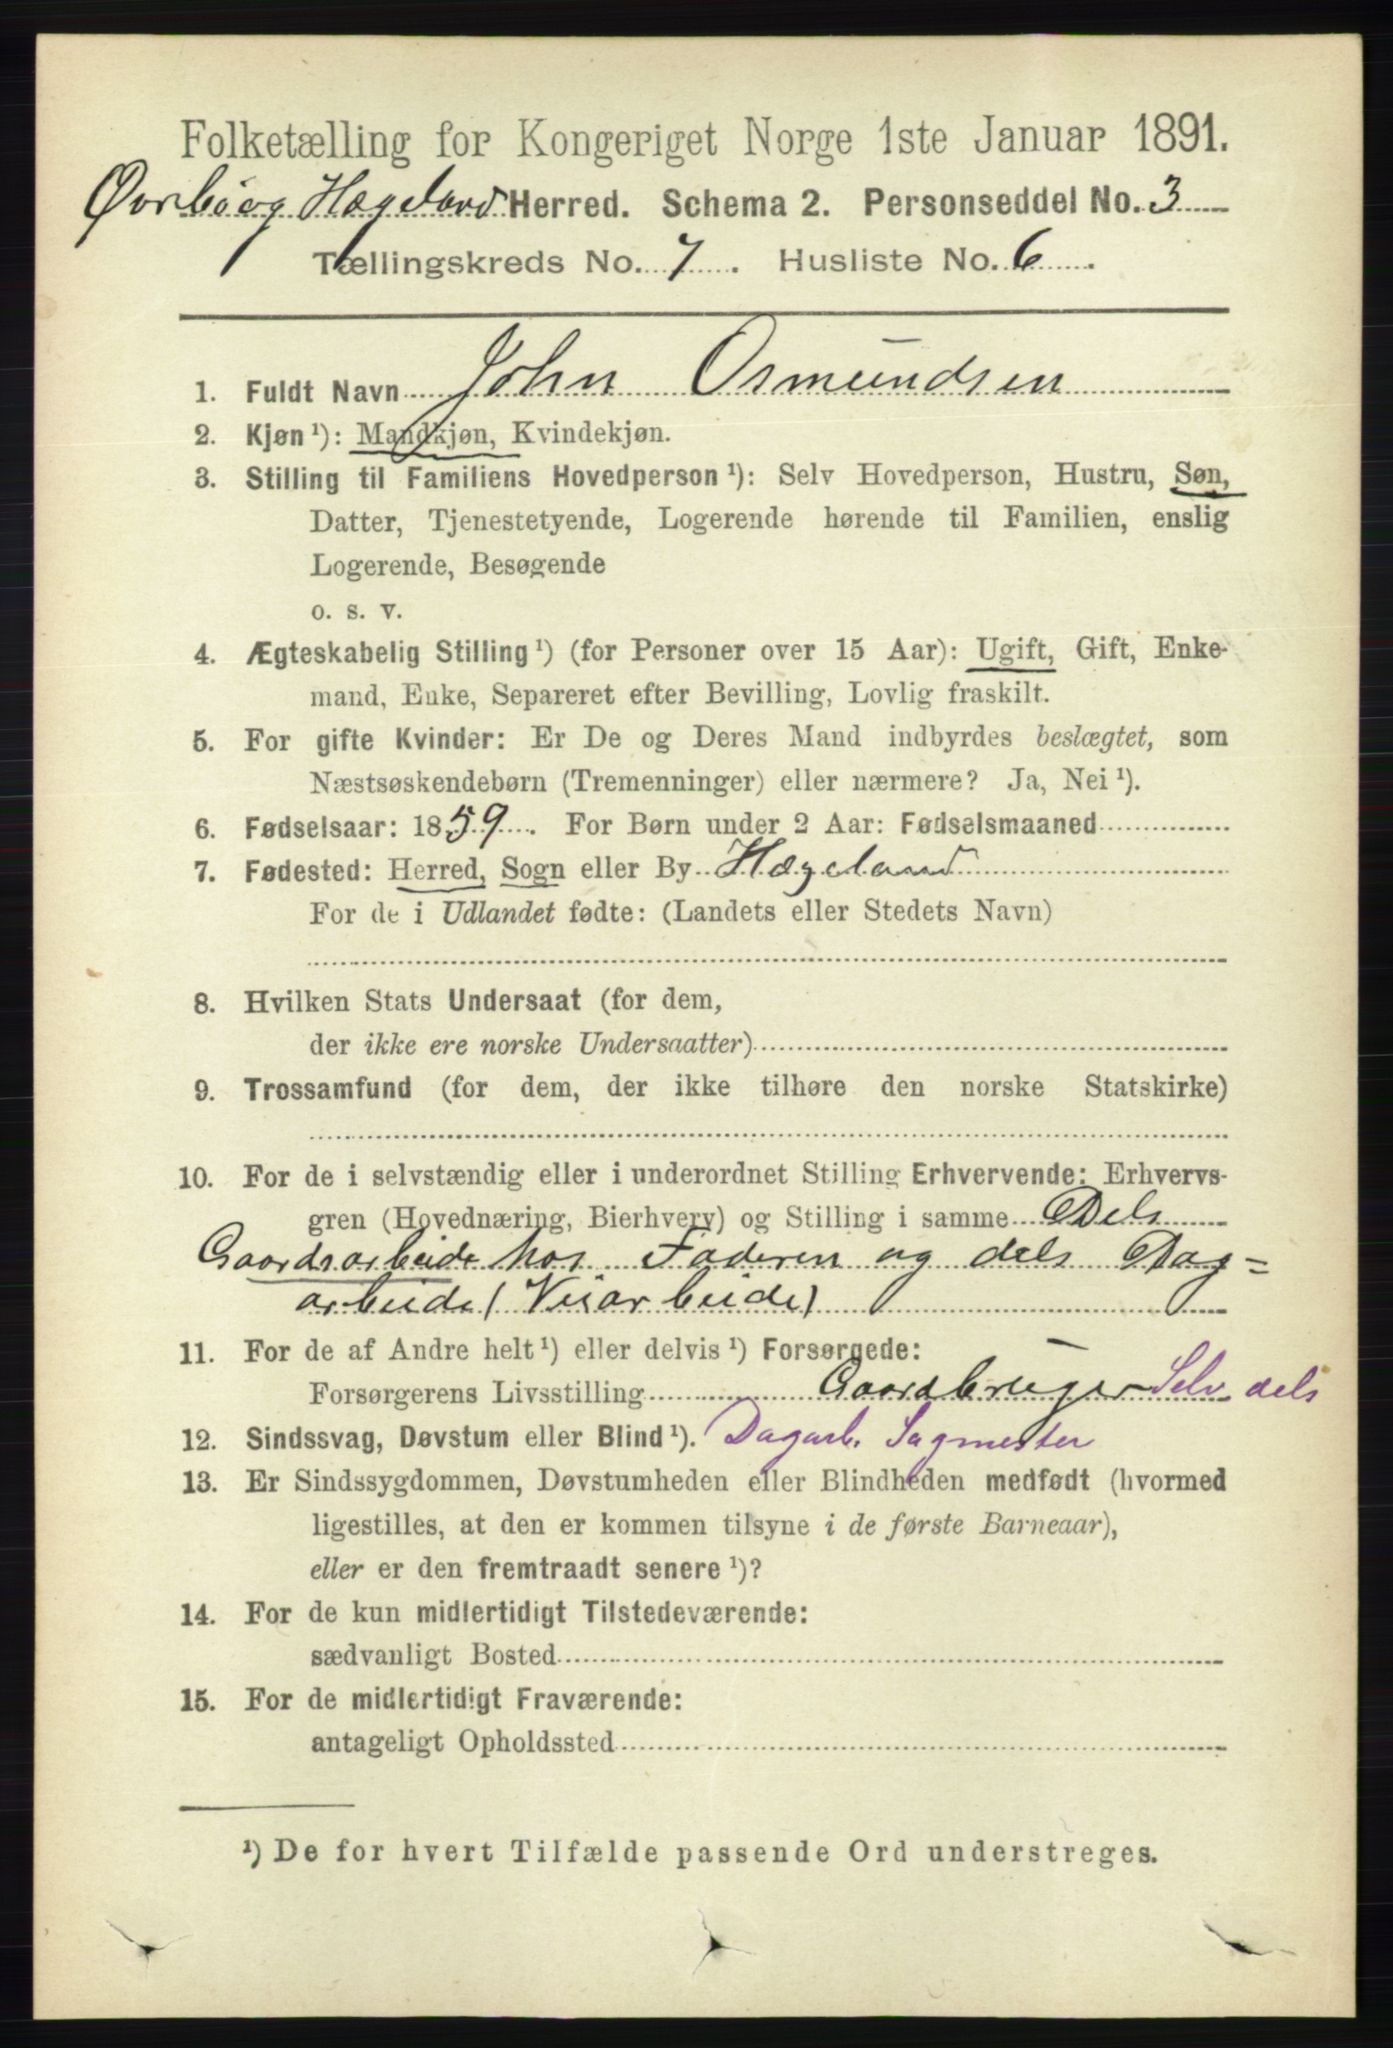 Folketælling for Kongeriget Norge 1ste Januar 1891.
Øvrebö og Hægeland Herred. Schema 2. Personseddel No. 3
Tællingskreds No. 7. Husliste No. 6.
1. Fuldt Navn John Osmundsen
2. Kjøn ¹): Mandkjøn, Kvindekjøn.
3. Stilling til Familiens Hovedperson ¹): Selv Hovedperson, Hustru, Søn,
Datter, Tjenestetyende, Logerende hørende til Familien, enslig
Logerende, Besøgende
o. s. v.
4. Ægteskabelig Stilling ¹) (for Personer over 15 Aar): Ugift, Gift, Enke-
mand, Enke, Separeret efter Bevilling, Lovlig fraskilt.
5. For gifte Kvinder: Er De og Deres Mand indbyrdes beslægtet, som
Næstsøskendebørn (Tremenninger) eller nærmere? Ja, Nei ¹).
6. Fødselsaar: 1859. For Børn under 2 Aar: Fødselsmaaned
7. Fødested: Herred, Sogn eller By Hægeland
For de i Udlandet fødte: (Landets eller Stedets Navn)
8. Hvilken Stats Undersaat (for dem,
der ikke ere norske Undersaatter)
9. Trossamfund (for dem, der ikke tilhøre den norske Statskirke)
10. For de i selvstændig eller i underordnet Stilling Erhvervende: Erhvervs-
gren (Hovednæring, Bierhverv) og Stilling i samme Dels
Gaardsarbeide hos Faderen og dels Dag=
arbeide (Veiarbeide)
11. For de af Andre helt ¹) eller delvis ¹) Forsørgede:
Forsørgerens Livsstilling Gaardbruger Selv dels
12. Sindssvag, Døvstum eller Blind ¹). Dagarb. Sagmester
13. Er Sindssygdommen, Døvstumheden eller Blindheden medfødt (hvormed
ligestilles, at den er kommen tilsyne i de første Barneaar),
eller er den fremtraadt senere ¹)?
14. For de kun midlertidigt Tilstedeværende:
sædvanligt Bosted
15. For de midlertidigt Fraværende:
antageligt Opholdssted
¹) De for hvert Tilfælde passende Ord understreges.